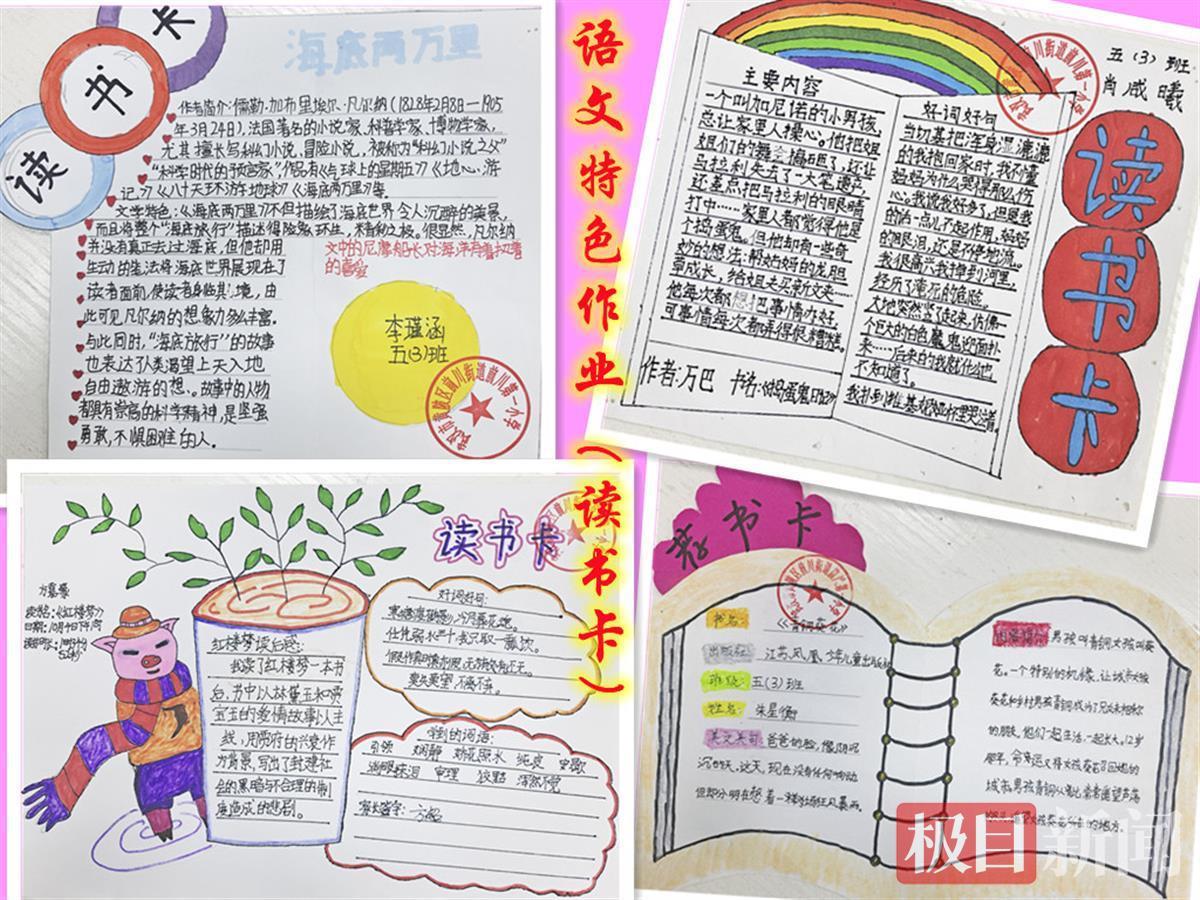 语文特色作业（读书卡）
读
书
卡
海底两万里
作者简介:儒勒·加布里埃尔·凡尔纳(1828年2月8日—1905
年3月24日),法国著名的小说家、科普学家、博物学家,
尤其擅长写科幻小说、冒险小说,被称为"科幻小说之父"
"科学时代的预言家"。
《八十天环游地球》《海底两万里》等。
文学特色:《海底两万里》不但描绘了海底世界令人沉醉的美景,
而且将整个"海底旅行"描述得险象环生,精彩之极。很显然,凡尔纳
并没有真正去过海底,但他却用
生动的笔法将海底世界展现在了
读者面前,使读者身临其境,由
此可见凡尔纳的想象力多么丰富。
与此同时,"海底旅行"的故事
也表达了人类渴望上天入地
自由遨游的想。故事中的人物
都具有崇高的科学精神,是坚强
勇敢,不惧困难的人。
文中的尼摩船长对海洋有着执着
的喜爱
李瑾涵
五(3)班
五(3)班
肖咸曦
读书卡
主要内容
一个叫加尼诺的小男孩,
总让家里人操心。他把姐
姐们的舞会搞砸了,还让
马拉利失去了一大笔遗产,
还差点把马拉利的眼睛
打中……家里人都觉得他是
个捣蛋鬼。但他却有一些奇
妙的想法:帮妈妈的龙胆
草成长,给姐老买新文来…
他每次都想把事情办好,
可事情每次都弄得很糟糕。
作者:万巴
好词好句
当切基把浑身湿漉漉
的我抱回家时,我不懂
妈妈为什么哭得那么伤
心。我说我好多了,但是我
的话一点儿不起作用,妈妈
的眼泪,还是不停地流。
我很高兴我掉到河里,
经历了淹死的危险。
大地突然竖了起来,仿佛一
个巨大的白色魔鬼迎面扑
来……后来的我就什么也
不知道了。
读书卡
方嘉豪
读后:《红楼梦》
红楼梦读后感:
我读了红楼梦一本书
后,书中以林黛玉和贾
宝玉的爱情故事以主
线,用贾府的兴衰作
为背景,写出了封建社
会的黑暗与不合理的制
度造成的悲剧。
好词好句:
任凭弱水三千我只取一瓢饮。
学到的词语:
引领 娴静 姣花照水 纯皮
浑然不觉
家长签字:
荐书卡
书名: 《青铜葵花》
出版社: 江苏凤凰少年儿童出版社
班级: 五(3)班
姓名: 朱星衡
美文美句: 爸爸的脸,像阴沉
沉的天。这天,现在没有任何响动
但却分明在憋着一种狂风暴雨。
男孩叫青铜女孩叫葵
花。一个特别的机缘,让城市女孩
葵花和乡村男孩青铜成为了兄妹相称
的朋友,他们一起生活,一起长大,12岁
那年,命运又将女孩葵花召回她的
城市,男孩青铜从此常常遥望芦荡
的尽头,遥望女孩葵花所在的地方。
极目新闻